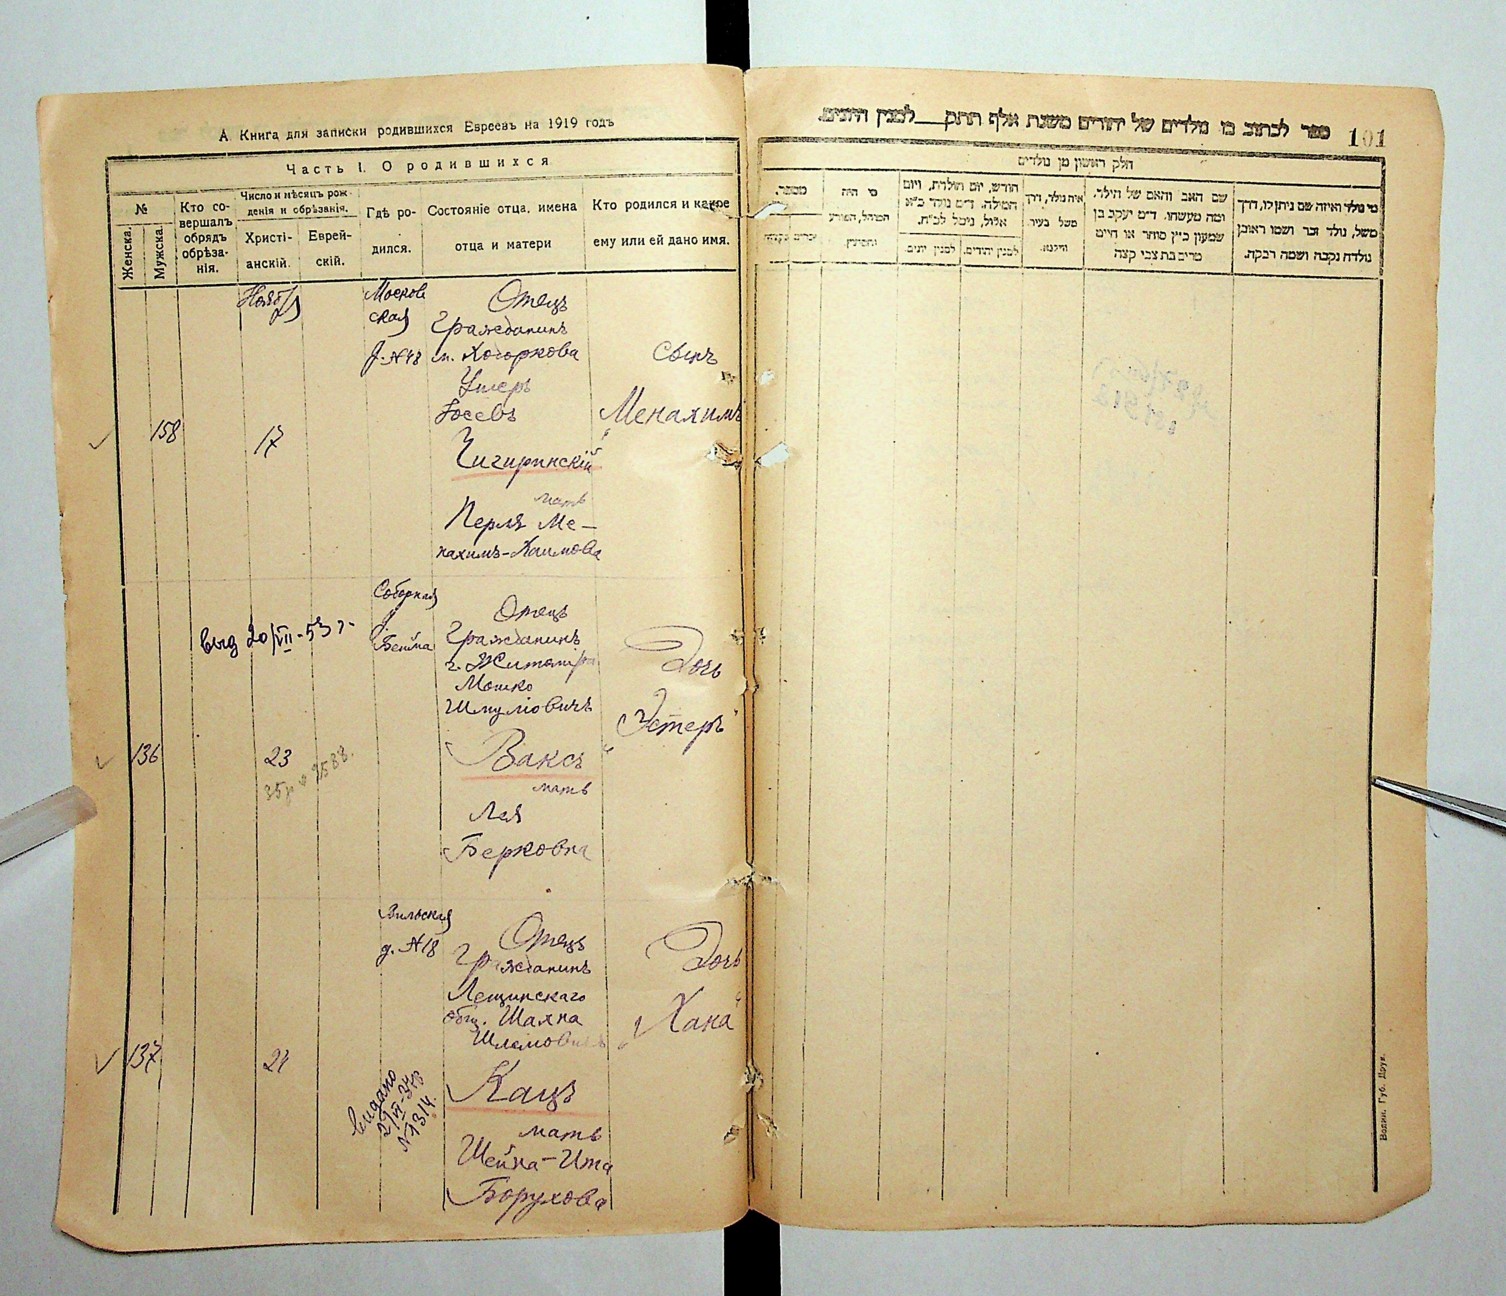 А. Книга для записки родившихся Евреевъ на 1919 годъ
Часть I. О родившихся
№
Женска.
Мужска.
Кто со-
вершалъ
обрядъ
обрѣза-
нія.
Число и мѣсяцъ рож-
денія и обрѣзанія.
Христі-
анскій.
Еврей-
скій.
Гдѣ ро-
дился.
Состояніе отца, имена
отца и матери
Кто родился и какое
ему или ей дано имя.
158
Ноябр
17
Москов
ская
д. №48
Отецъ
Гражданинъ
м. Ходоркова
Ушеръ
Іосевъ
Чигиринскій
мать
Перля Ме-
нахимъ-Хаимова
сынъ
„Менахимъ“
136
выд 20/VII-53 г.
23
Соборная
д.
Бейма
Отецъ
Гражданинъ
г. Житомира
Мошко
Шмуліовичъ
Ваксъ
мать
Лея
Берковна
Дочь
„Эстеръ“
137
24
Вильская
д. №18
выдано
№1314.
Отецъ
Гражданинъ
Лещинскаго
общ. Шаяна
Шлемовичъ
Кацъ
мать
Шейна-Ита
Борухова
Дочь
„Хана“
101
ספר לכתוב בו נולדים של יהודים משנת אלף תתק___למנין היונים.
חלק ראשון מן נולדים
מספר.
מי היה
המוהל, הפורע
והמוצץ.
חודש, יום הולדת, ויום
המילה. ד״מ נולד כ״א
אלול, נימול לכ״ח.
למנין יונים.
למנין יהודים.
איה נולד, דרך
משל בעיר
ווילנא.
שם האב והאם של הילד,
ומה מעשהו. ד״מ יעקב בן
שמעון כ״ץ סוחר או חייט
מרים בת צבי קצה
מי נולד ואיזה שם ניתן לו, דרך
משל, נולד זכר ושמו ראובן
נולדה נקבה ושמה רבקה.
Волин. Губ. Друк.